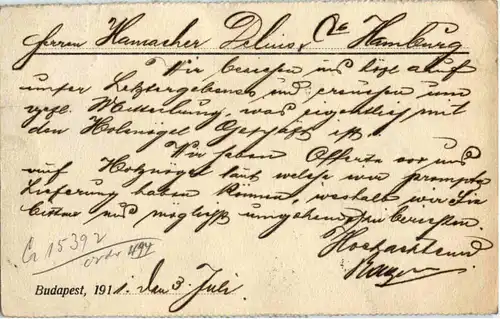 Herrn Hamacher Delius & Co Hamburg
Wir beziehen uns höfl. auf
unser Letztergebenes und ersuchen um
gefl. Mitteilung, was eigentlich mit
den Holznägel Geschäft ist.
Wir haben Offerte vor uns
auf Holznägel laut welche wir prompte
Lieferung haben können, weshalb wir Sie
bitten uns möglichst umgehend zu berichten.
Hochachtend
Cr 15392
Budapest, 191 1. den 3. Juli